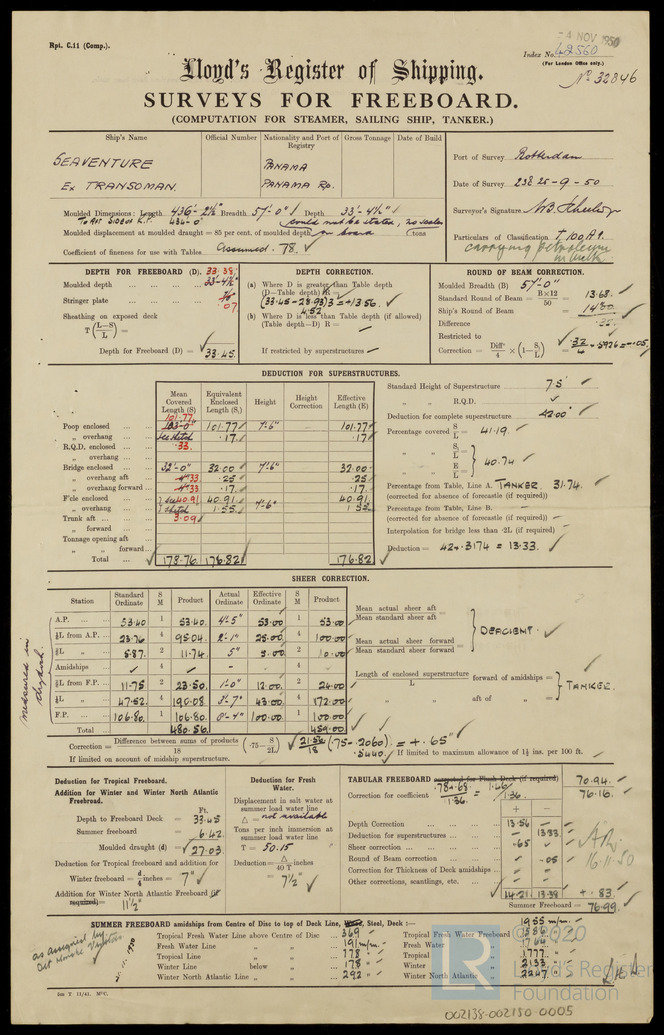 Rpt. C.11 (Comp.).
4 NOV 1950
Index No. 48560
(For London Office only.)
No 32846
Lloyd's Register of Shipping.
SURVEYS FOR FREEBOARD.
(COMPUTATION FOR STEAMER, SAILING SHIP, TANKER.)
Ship's Name Official Number Nationality and Port of Registry Gross Tonnage Date of Build
SEAVENTURE PANAMA
Ex TRANSOMAN. PANAMA Rp.
Port of Survey Rotterdam
Date of Survey 23& 25-9-50
Surveyor's Signature
Particulars of Classification † 100A1.
carrying petroleum in bulk
Moulded Dimensions: Length 436'-2½" Breadth 57'-0" Depth 33'-4½"
434'-0" could not be stated, no scales
Moulded displacement at moulded draught = 85 per cent. of moulded depth on board tons
Coefficient of fineness for use with Tables Assumed .78.
DEPTH FOR FREEBOARD (D).
Moulded depth 33'-4½" 33.38
Stringer plate .07
Sheathing on exposed deck
T (L-S/L) =
Depth for Freeboard (D) = 33.45
DEPTH CORRECTION.
(a) Where D is greater than Table depth
(D—Table depth) R =
(33.45-28.93) 3 = + 13.56
4.52
(b) Where D is less than Table depth (if allowed)
(Table depth—D) R =
If restricted by superstructures
ROUND OF BEAM CORRECTION.
Moulded Breadth (B) 57'-0"
Standard Round of Beam = B×12/50 = 13.68
Ship's Round of Beam = 14.00
Difference .32
Restricted to
Correction = Diff/4 × (1-S₁/L) = .32/4 × .5926 = -.05
DEDUCTION FOR SUPERSTRUCTURES.
Mean Covered Length (S) Equivalent Enclosed Length (S₁) Height Height Correction Effective Length (E)
Poop enclosed 101.77 103'-0" 101.77 7'-6" 101.77
„ overhang See sketch .17 .17
R.Q.D. enclosed .33
„ overhang
Bridge enclosed 32'-0" 32.00 7'-6" 32.00
„ overhang aft .33 .25 .25
„ overhang forward .33 .17 .17
F'cle enclosed 40.91 40.91 7'-6" 40.91
„ overhang sketch 1.55 1.55
Trunk aft 3.09
„ forward
Tonnage opening aft
„ „ forward
Total 178.76 176.82 176.82
Standard Height of Superstructure 7.5'
„ „ R.Q.D.
Deduction for complete superstructure 42.00"
Percentage covered S/L = 41.19
„ „ S₁/L =
E/L = 40.74
Percentage from Table, Line A. TANKER. 31.74
(corrected for absence of forecastle (if required))
Percentage from Table, Line B.
(corrected for absence of forecastle (if required))
Interpolation for bridge less than ·2L (if required)
Deduction = 42 × .3174 = 13.33.
SHEER CORRECTION.
measured in drydock
Station Standard Ordinate S M Product Actual Ordinate Effective Ordinate S M Product
A.P. 53.40 1 53.40 4'-5" 53.00 1 53.00
⅙L from A.P. 23.76 4 95.04 2'-1" 25.00 4 100.00
⅓L „ 5.87 2 11.74 5" 5.00 2 10.00
Amidships 4 - 4
⅓L from F.P. 11.75 2 23.50 1'-0" 12.00 2 24.00
⅙L „ 47.52 4 190.08 3'-7" 43.00 4 172.00
F.P. 106.80 1 106.80 8'-4" 100.00 1 100.00
Total 480.56 459.00
Mean actual sheer aft
Mean standard sheer aft =
Mean actual sheer forward
Mean standard sheer forward =
DEFICIENT
Length of enclosed superstructure forward of amidships =
L
„ „ aft of „ =
TANKER
Correction = Difference between sums of products/18 (·75—S/2L) = 21.56/18 (.75-.2060) = + .65"
.5440
If limited on account of midship superstructure.
If limited to maximum allowance of 1½ ins. per 100 ft.
Deduction for Tropical Freeboard.
Addition for Winter and Winter North Atlantic Freeboard.
Ft.
Depth to Freeboard Deck = 33.45
Summer freeboard = 6.42
Moulded draught (d) = 27.03
Deduction for Tropical freeboard and addition for
Winter freeboard = d/4 inches = 7"
Addition for Winter North Atlantic Freeboard (if required) = 11½"
Deduction for Fresh Water.
Displacement in salt water at summer load water line
Δ = not available
Tons per inch immersion at summer load water line
T = 50.15
Deduction = Δ/40 T inches
= 7½"
TABULAR FREEBOARD corrected for Flush Deck (if required) 70.94
Correction for coefficient .78+.68/1.36 = 1.46/1.36 76.16
+ —
Depth Correction 13.56 -
Deduction for superstructures - 13.33
Sheer correction .65 -
Round of Beam correction - .05
Correction for Thickness of Deck amidships
Other corrections, scantlings, etc.
14.21 13.38 +.83
Summer Freeboard = 76.99
16.11.50
SUMMER FREEBOARD amidships from Centre of Disc to top of Deck Line, Wood, Steel, Deck :— 1955 m/m.
Tropical Fresh Water Line above Centre of Disc 369 Tropical Fresh Water Freeboard 1586
Fresh Water Line „ „ 191 m/m. Fresh Water „ 1764
Tropical Line „ „ 178 Tropical „ 1777
Winter Line below „ 178 Winter „ 2133
Winter North Atlantic Line „ „ 292 Winter North Atlantic „ 2247
as assigned by
Det Norske Veritas
2m T 11/41. M'C.
LR
© 2020
Lloyd's Register
Foundation
002138-002150-0005